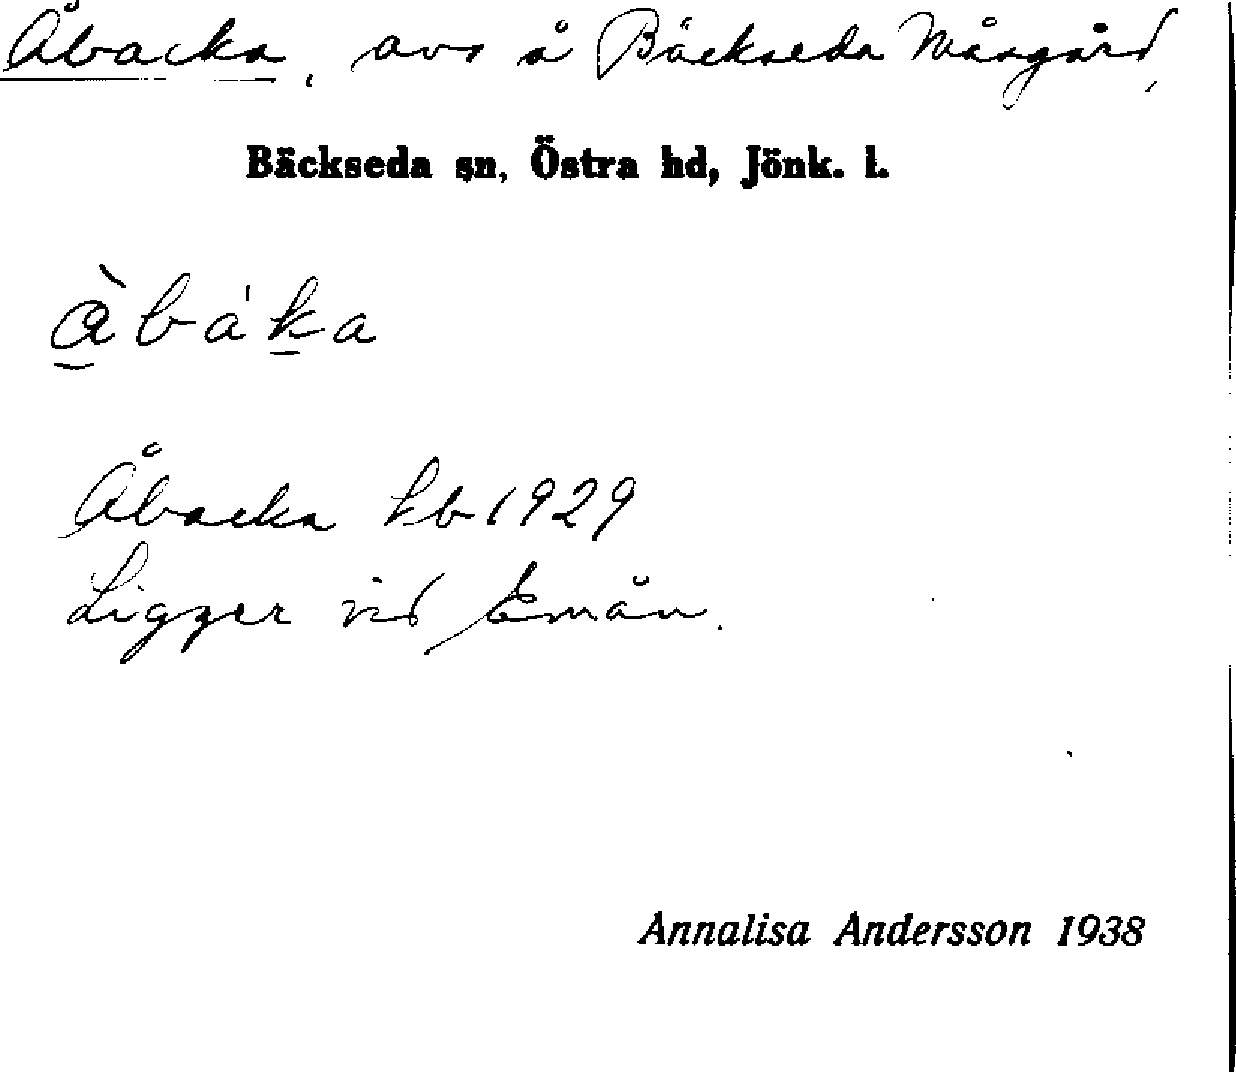 Åbacka, avs å Bäckseda Måsgård,
Bäckseda sn, Östra hd, Jönk. l.
Åbacka kb 1929
Ligger vid Emån.
Annalisa Andersson 1938